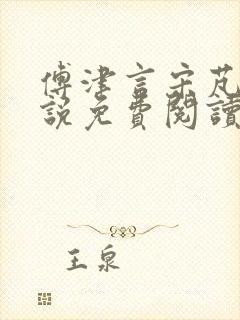 傅津言宋芃
說免費閱讀
王泉